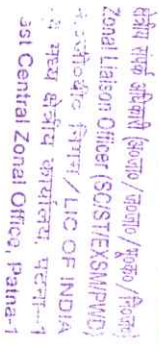 क्षेत्रीय संपर्क अधिकारी (अ०जा०/ज०जा०/भू०क०/वि०ज०)
Zonal Liaison Officer (SC/ST/EXSM/PWD)
निगम / LIC OF INDIA
मध्य क्षेत्रीय कार्यालय, पटना-1
ast Central Zonal Office, Patna-1